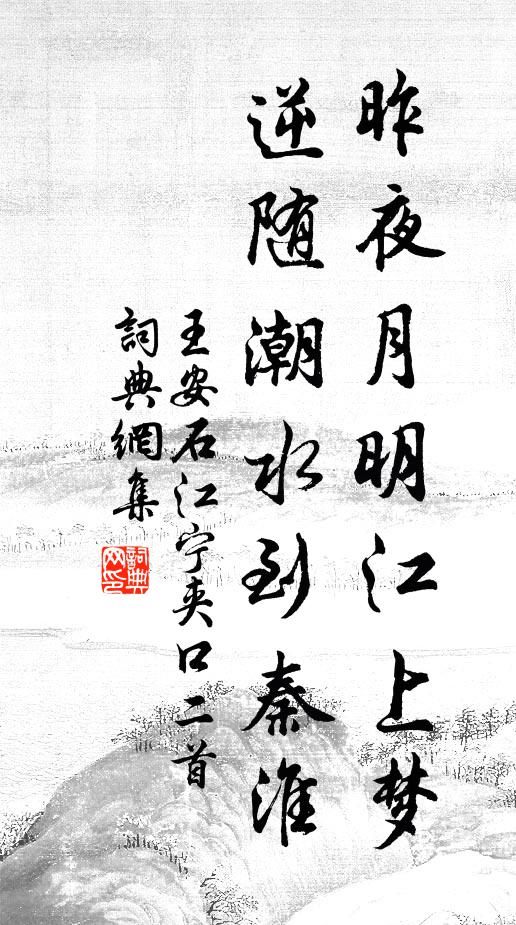 昨夜月明江上梦
逆随潮水到秦淮
王安石江宁夹口二首
词典網集
詞典
网印